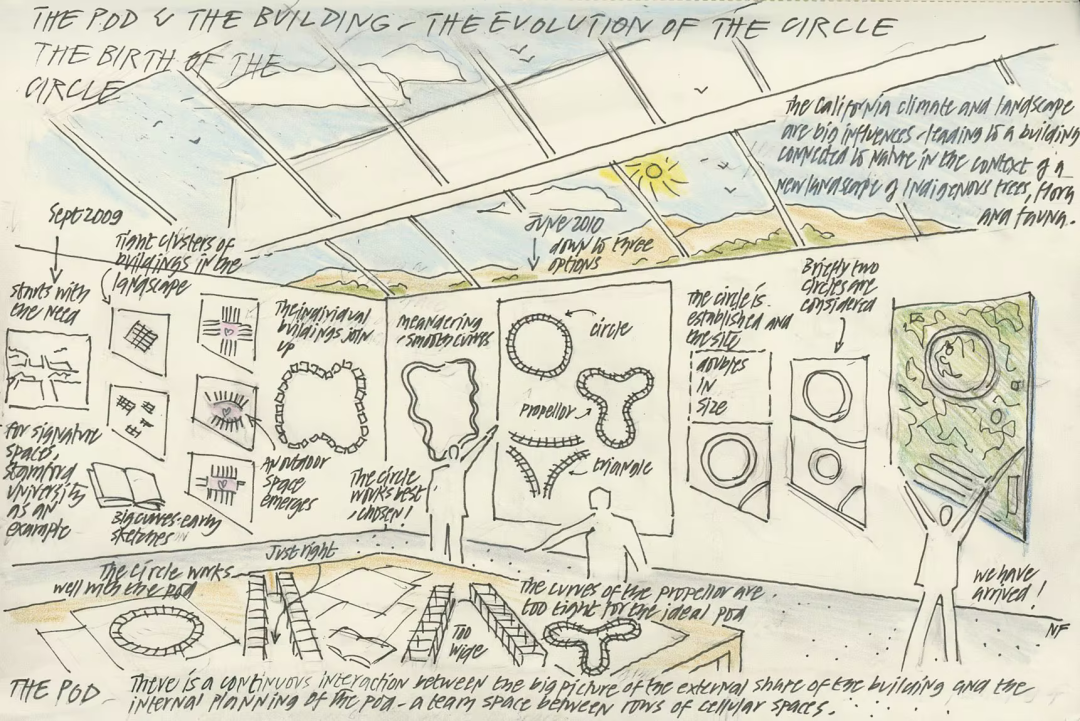 THE POD & THE BUILDING - THE EVOLUTION OF THE CIRCLE
THE BIRTH OF THE
CIRCLE
The California climate and landscape
are big influences - leading to a building
connected to nature in the context of a
new landscape of indigenous trees, flora
and fauna.
Sept 2009
Tight clusters of
buildings in the
landscape
starts with
the need
The individual
buildings join
up
meandering
- smooth curves
June 2010
down to three
options
circle
propellor
triangle
The circle is
established and
the site
doubles
in
size
Briefly two
circles are
considered
for signature
spaces,
Stamford
university
as an
example
Big curves - early
sketches
An outdoor
space
emerges
The circle
works best
, chosen!
Just right
The circle works
well with the pod
Too
wide
The curves of the propellor are
too tight for the ideal pod
we have
arrived!
NF
THE POD - There is a continuous interaction between the big picture of the external share of the building and the
internal planning of the pod - a team space between rows of cellular spaces.